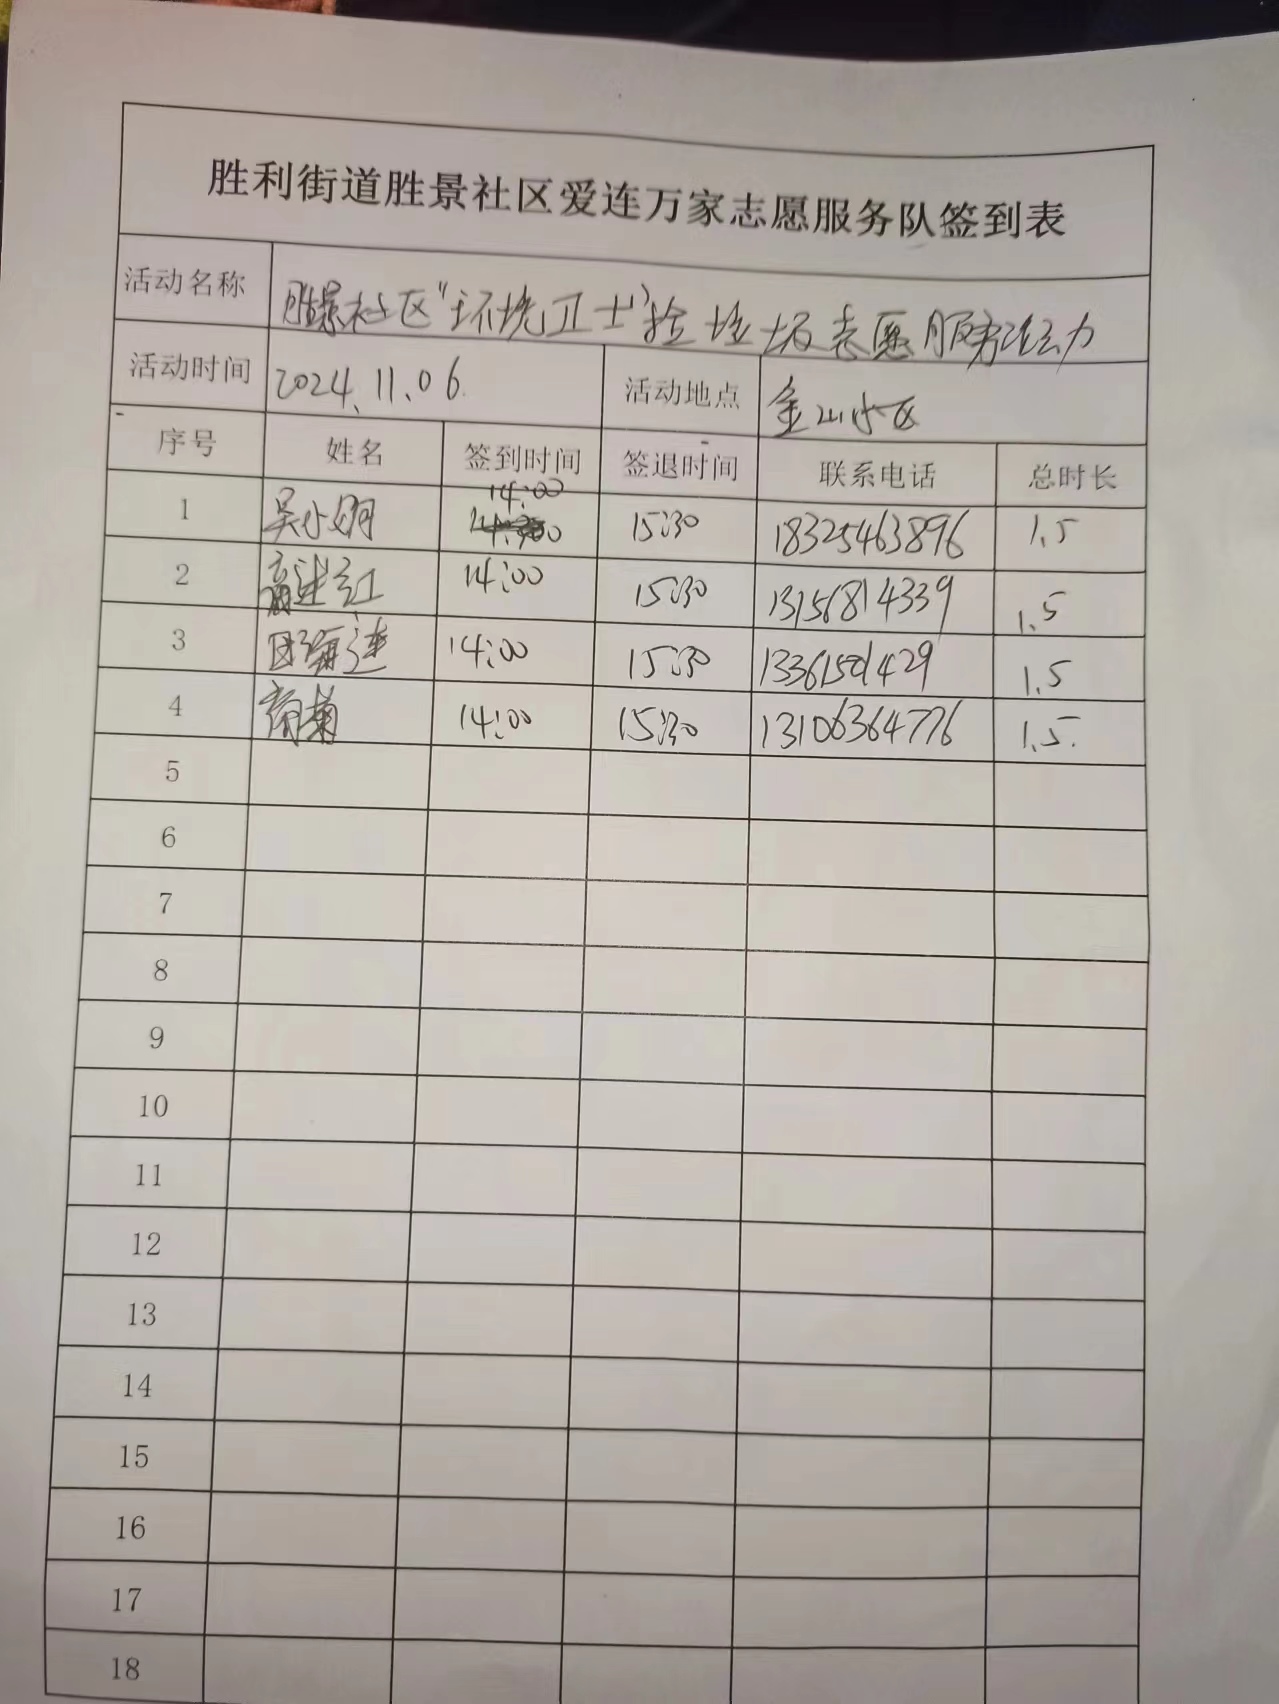 胜利街道胜景社区爱连万家志愿服务队签到表
活动名称 胜景社区“环境卫士”捡垃圾志愿服务活动
活动时间 2024.11.06. 活动地点 金山小区
序号 姓名 签到时间 签退时间 联系电话 总时长
14:00
1 吴小娟 15:30 18325463896 1.5
2 红 14:00 15:30 13156814339 1.5
3 14:00 15:30 1.5
4 菊 14:00 15:30 13106364776 1.5.
5
6
7
8
9
10
11
12
13
14
15
16
17
18